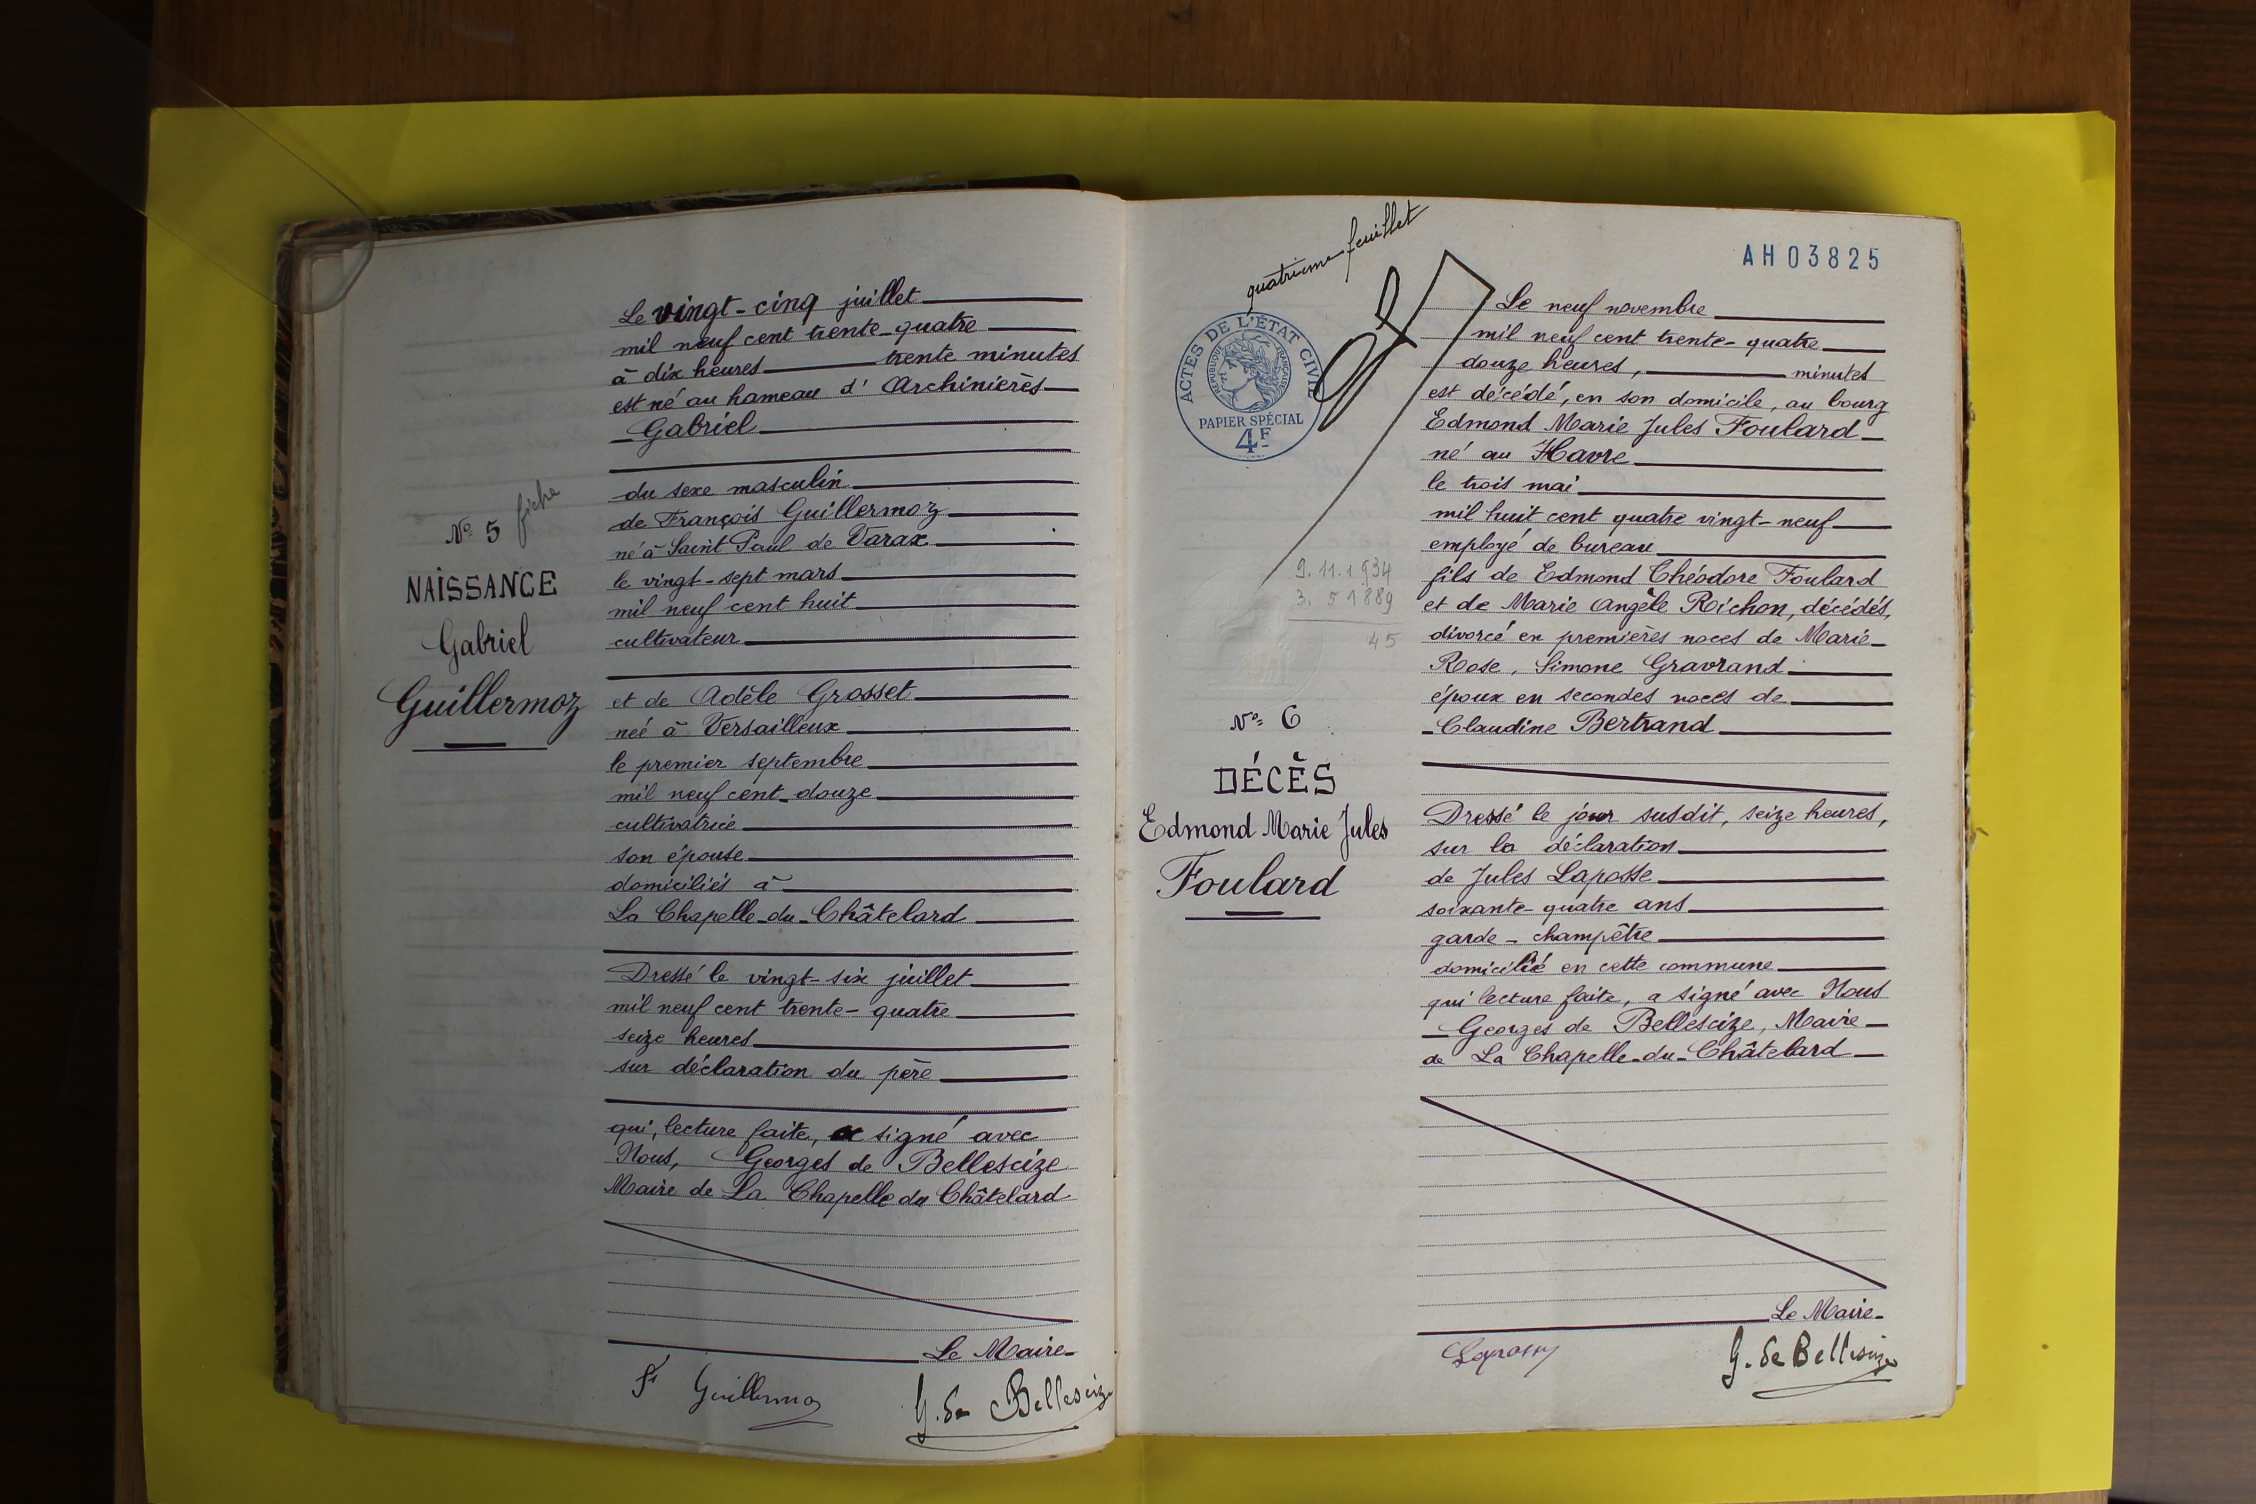 N° 5 fiche
NAISSANCE
Gabriel
Guillermoz
Le vingt-cinq juillet
mil neuf cent trente-quatre
à dix heures trente minutes
est né au hameau d'Archinières
Gabriel
du sexe masculin
de François Guillermoz
né à Saint Paul de Varax
le vingt-sept mars
mil neuf cent huit
cultivateur
et de Adèle Grosset
née à Versailleux
le premier septembre
mil neuf cent douze
cultivatrice
son épouse
domiciliés à
La Chapelle-du-Châtelard
Dressé le vingt-six juillet
mil neuf cent trente-quatre
seize heures
sur déclaration du père
qui, lecture faite, a signé avec
Nous, Georges de Bellescize
Maire de La Chapelle du Châtelard
Le Maire
Guillermoz
G. de Bellescize
quatrième feuillet
AH03825
ACTES DE L'ÉTAT CIVIL
RÉPUBLIQUE FRANÇAISE
PAPIER SPÉCIAL
4F
9.11.1934
3. 5 1889
45
N° 6
DÉCÈS
Edmond Marie Jules
Foulard
Le neuf novembre
mil neuf cent trente-quatre
douze heures, minutes
est décédé, en son domicile, au bourg
Edmond Marie Jules Foulard
né au Havre
le trois mai
mil huit cent quatre vingt-neuf
employé de bureau
fils de Edmond Théodore Foulard
et de Marie Angèle Richon, décédés,
divorcé en premières noces de Marie
Rose, Simone Gravrand
époux en secondes noces de
Claudine Bertrand
Dressé le jour susdit, seize heures,
sur la déclaration
de Jules Laposse
soixante-quatre ans
garde-champêtre
domicilié en cette commune
qui lecture faite, a signé avec Nous
Georges de Bellescize, Maire
de La Chapelle-du-Châtelard
Le Maire
G. de Bellescize